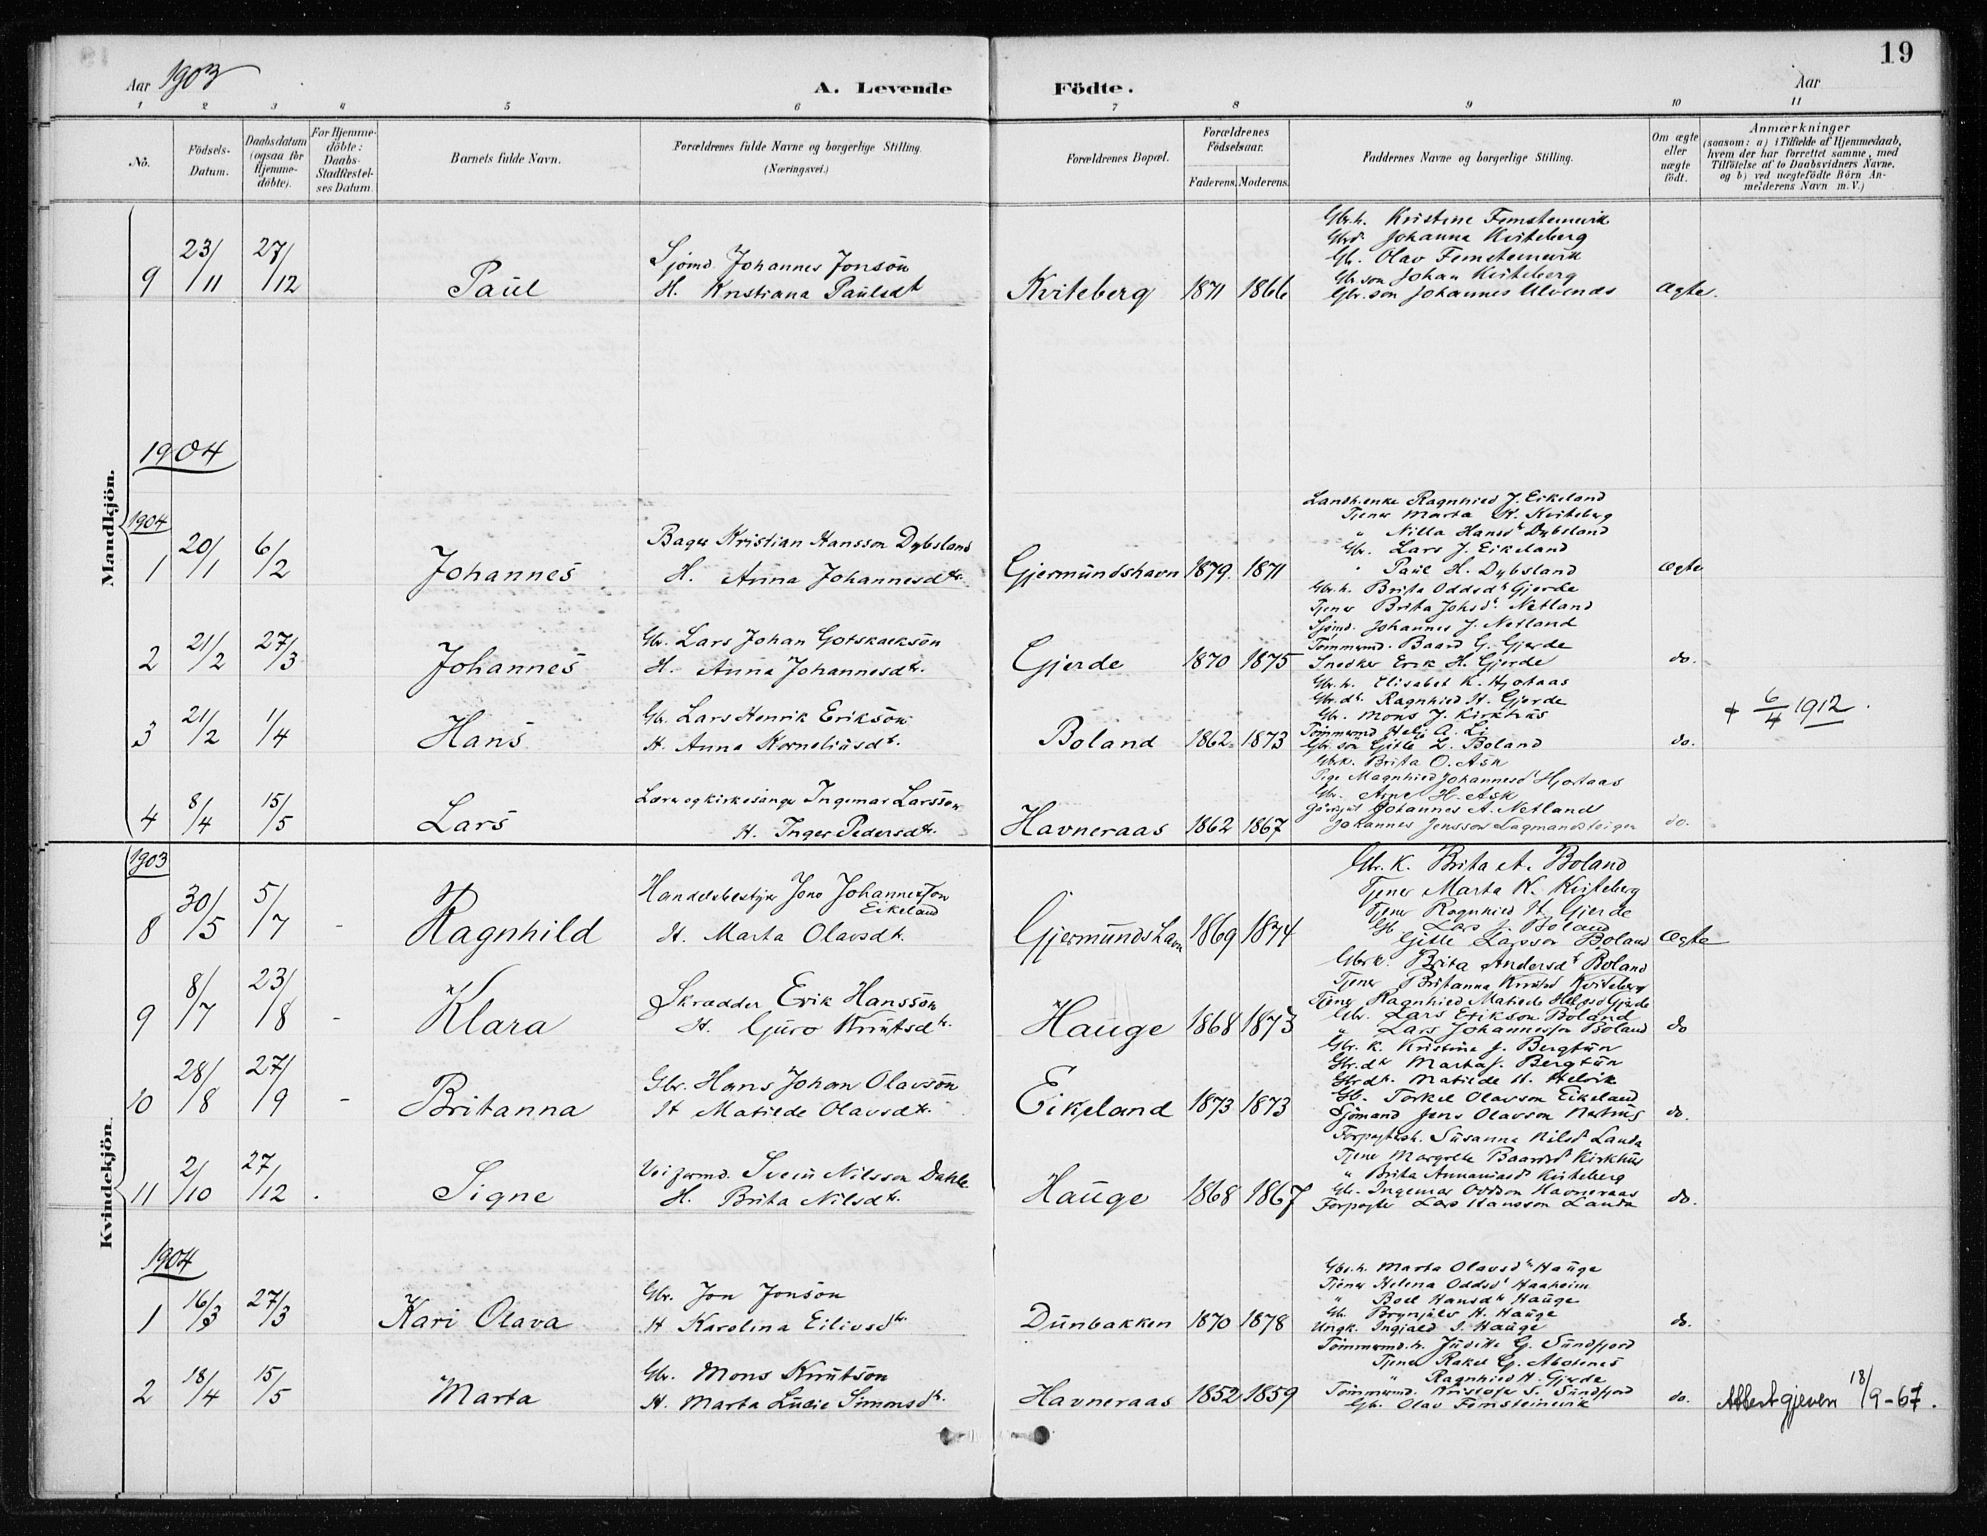 19
Aar 1903
A. Levende Födte.
Aar
1 2 3 4 5 6 7 8 9 10 11
No.
Födsels-Datum.
Daabsdatum (ogsaa for Hjemme-döbte).
For Hjemme-döbte: Daabs-Stadfæstel-ses Datum
Barnets fulde Navn.
Forældrenes fulde Navne og borgerlige Stilling. (Næringsvei.)
Forældrenes Bopæl.
Forældrenes Födselsaar.
Faderens. Moderens.
Faddernes Navne og borgerlige Stilling.
Om ægte eller uægte födt.
Anmærkninger
(saasom: a) i Tilfælde af Hjemmedaab,
hvem der har forrettet samme, med
Tilföielse af to Daabsvidners Navne.
og b) ved uægtefödte Börn An-
melderens Navn m. V.)
Mandkjön.
9 23/11 27/12 Paul
Sjömd. Johannes Jonson
H. Kristiana Paulsdt
Kviteberg 1871 1866
Gbr.h. Kristine Femsteinevik
Gbrd. Johanna Kviteberg
Gb. Olav Femsteinevik
Gbr.son Johan Kviteberg
Gbr.son Johannes Ulvenes
ægte.
1904
1904
1 20/1 6/2 Johannes
Bager Kristian Hansson Dybsland
H. Anna Johannesdtr.
Gjermundshavn 1879. 1871
Landh.enke Ragnhild J. Eikeland
Tjener Marta K. Kviteberg
" Nilla Hansdt Dybsland
Gbr. Lars J. Eikeland
" Paul H. Dybsland
ægte
2 21/2 27/3 Johannes
Gbr. Lars Johan Gotskalkson
H. Anna Johannesdtr.
Gjerde 1870 1875
Gbr.h. Brita Oddsdt Gjerde
Tjener Brita Johsdt. Netland
Sjömd. Johannes J. Netland
Tömmermd. Baard G. Gjerde
Snedker Erik H. Gjerde
do.
3 21/2 1/4 Hans
Gb. Lars Henrik Erikson
H. Anna Korneliusdt.
Boland 1862. 1873
Gbr.h. Elisabet K. Hjotaas
Gbr.dt. Ragnhild H. Gjerde
Gb. Mons J. Kirkhus
Tömmermd Helje A. Li
Gbr.son Gitle L. Boland
do.
+ 6/4 1912.
4 8/4 15/5 Lars
Lærer og kirkesanger Ingemar Larsson
H. Inger Pedersdtr.
Havneraas 1862 1867
Gbrk. Brita O. Ask
Pige Magnhild Johannesdt Hjotaas
Gbr. Arne H. Ask
Johannes A. Netland
Johannes Jensson Lagmandsteigen
do.
Kvindekjön.
1903
8 30/5 5/7 - Ragnhild
Handelsbestyr Jons Johannesson Eikeland
H. Marta Olavsdt.
Gjermundshavn 1869 1874
Gbr. K. Brita A. Boland
Tjener Marta K. Kviteberg
Tjener Ragnhild H. Gjerde
Gb. Lars J. Boland
Gitle Larsson Boland
ægte
9 8/7 23/8 - Klara
Skrædder Erik Hansson
H. Guro Knutsdtr.
Hauge 1868 1873
Gbrk. Brita Andersdt Boland
Tjener Britanna Knutsd Kviteberg
Tjener Ragnhild Matilde Helgesd Gjerde
Gbr. Lars Erikson Boland
" Lars Johannesson Boland
do
10 28/8 27/9 - Britanna
Gbr. Hans Johan Olavson
H Matilde Olavsdtr.
Eikeland 1873 1873
Gbr. K. Kristina J. Bergtun
Gbr.dt Marta J. Bergtun
Gbrdt. Matilde H. Helvik
Gb. Torkel Olavson Eikeland
Sjömand Jens Olavson
do.
11 2/10 27/12 . Signe
Veiformd. Svein Nilsson Dahle
H. Brita Nilsdtr.
Hauge 1868 1867
Forpagtersh. Susanna Nilsdt Landa
Tjene Margrete Baardsdt Kirkhus
" Brita Annaniasdt Kviteberg
Gb. Ingemar Oddson Havneraas
Forpagter Lars Hansson Landa
do.
1904
1 16/3 27/3 Kari Olava
Gbr. Jon Jonson
H Karolina Eilivsdtr.
Dunbakken 1870 1878
Gbr.h. Marta Olavsdtr Hauge
Tjener Helena Oddsdt Haaheim
" Boel Hansdtr Hauge
Gb. Brynjulv H. Hauge
Ungk. Ingjald S. Hauge
do.
2 18/4 15/5 Marta
Gbr. Mons Knutson
H. Marta Lucie Simonsdt.
Havneraas 1852 1859
Tömmermd.h. Juditte G. Sundfjord
Tjener Rakel G.
" Ragnhild H. Gjerde
Tömmermd. Kristofer S. Sundfjord
Gb. Olav Femsteinevik
do.
Attest gjeven 18/9-67.